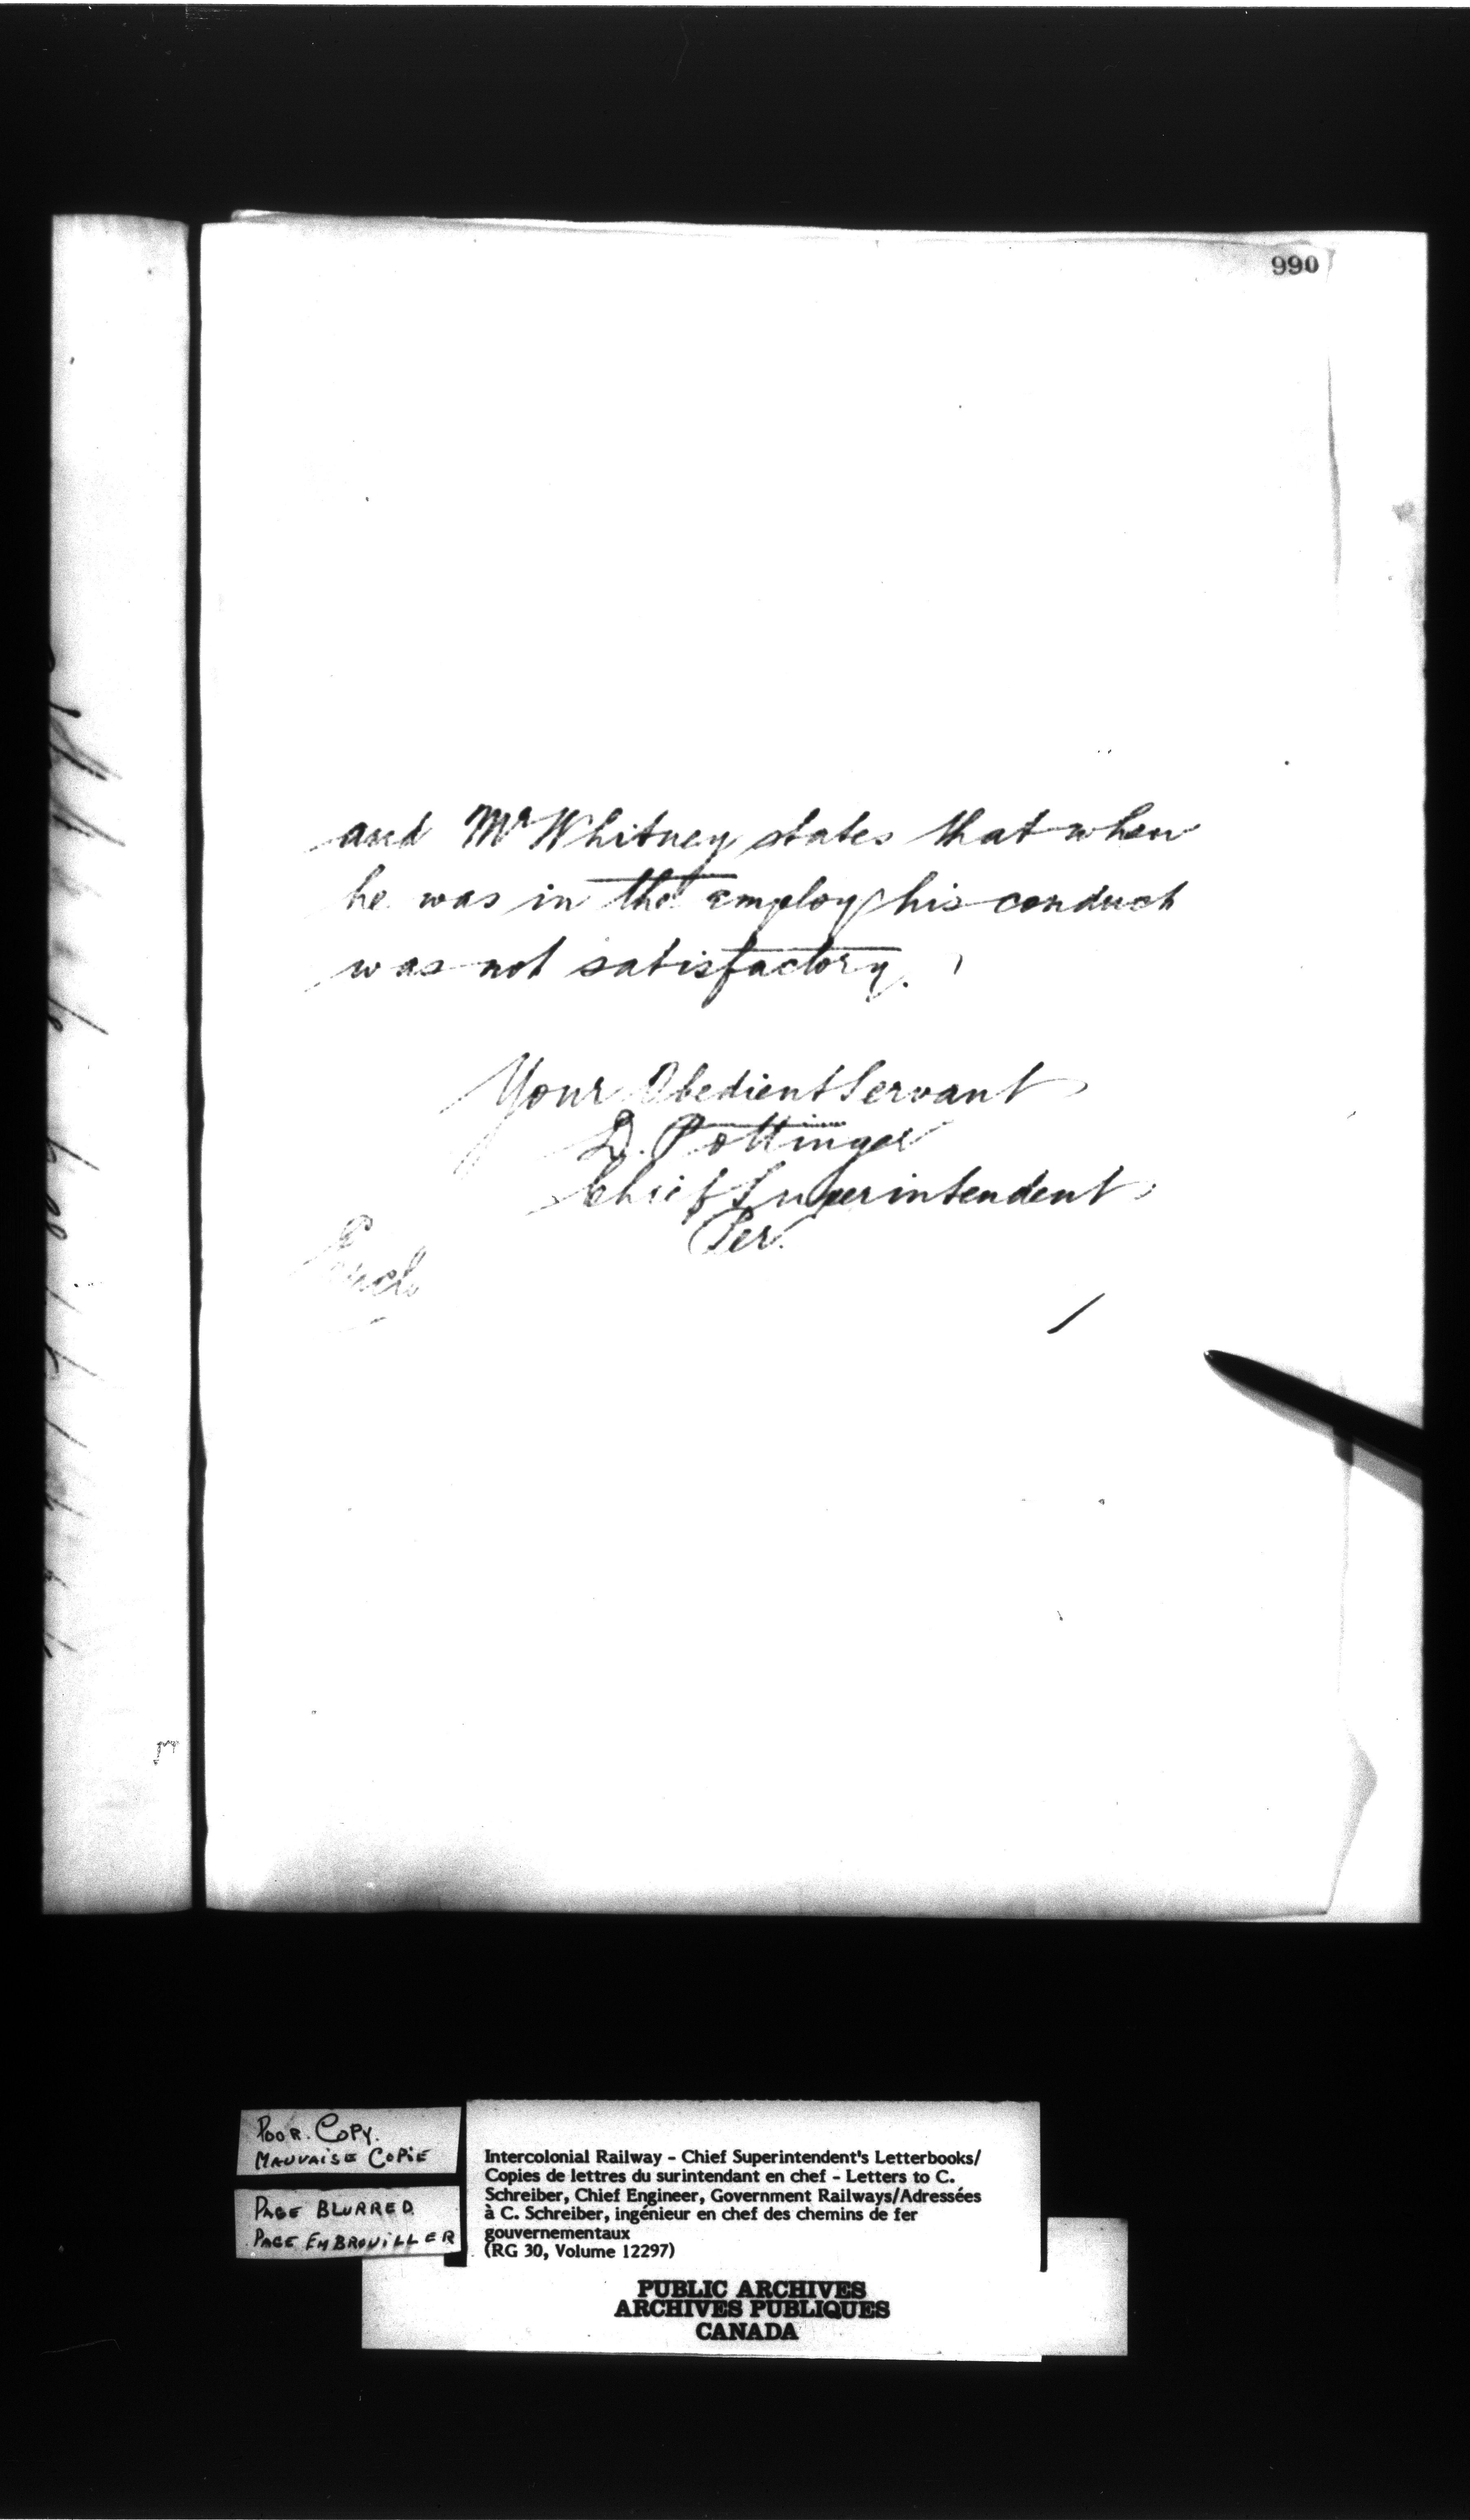 990
and Mr Whitney states that when
he was in the employ his conduct
was not satisfactory.
Your Obedient Servant
D. Pottinger
Chief Superintendent
Per.
Encl
POOR. COPY.
MAUVAISE COPIE
PAGE BLURRED
PAGE EMBROUILLER
Intercolonial Railway - Chief Superintendent's Letterbooks/
Copies de lettres du surintendant en chef - Letters to C.
Schreiber, Chief Engineer, Government Railways/Adressées
à C. Schreiber, ingénieur en chef des chemins de fer
gouvernementaux
(RG 30, Volume 12297)
PUBLIC ARCHIVES
ARCHIVES PUBLIQUES
CANADA